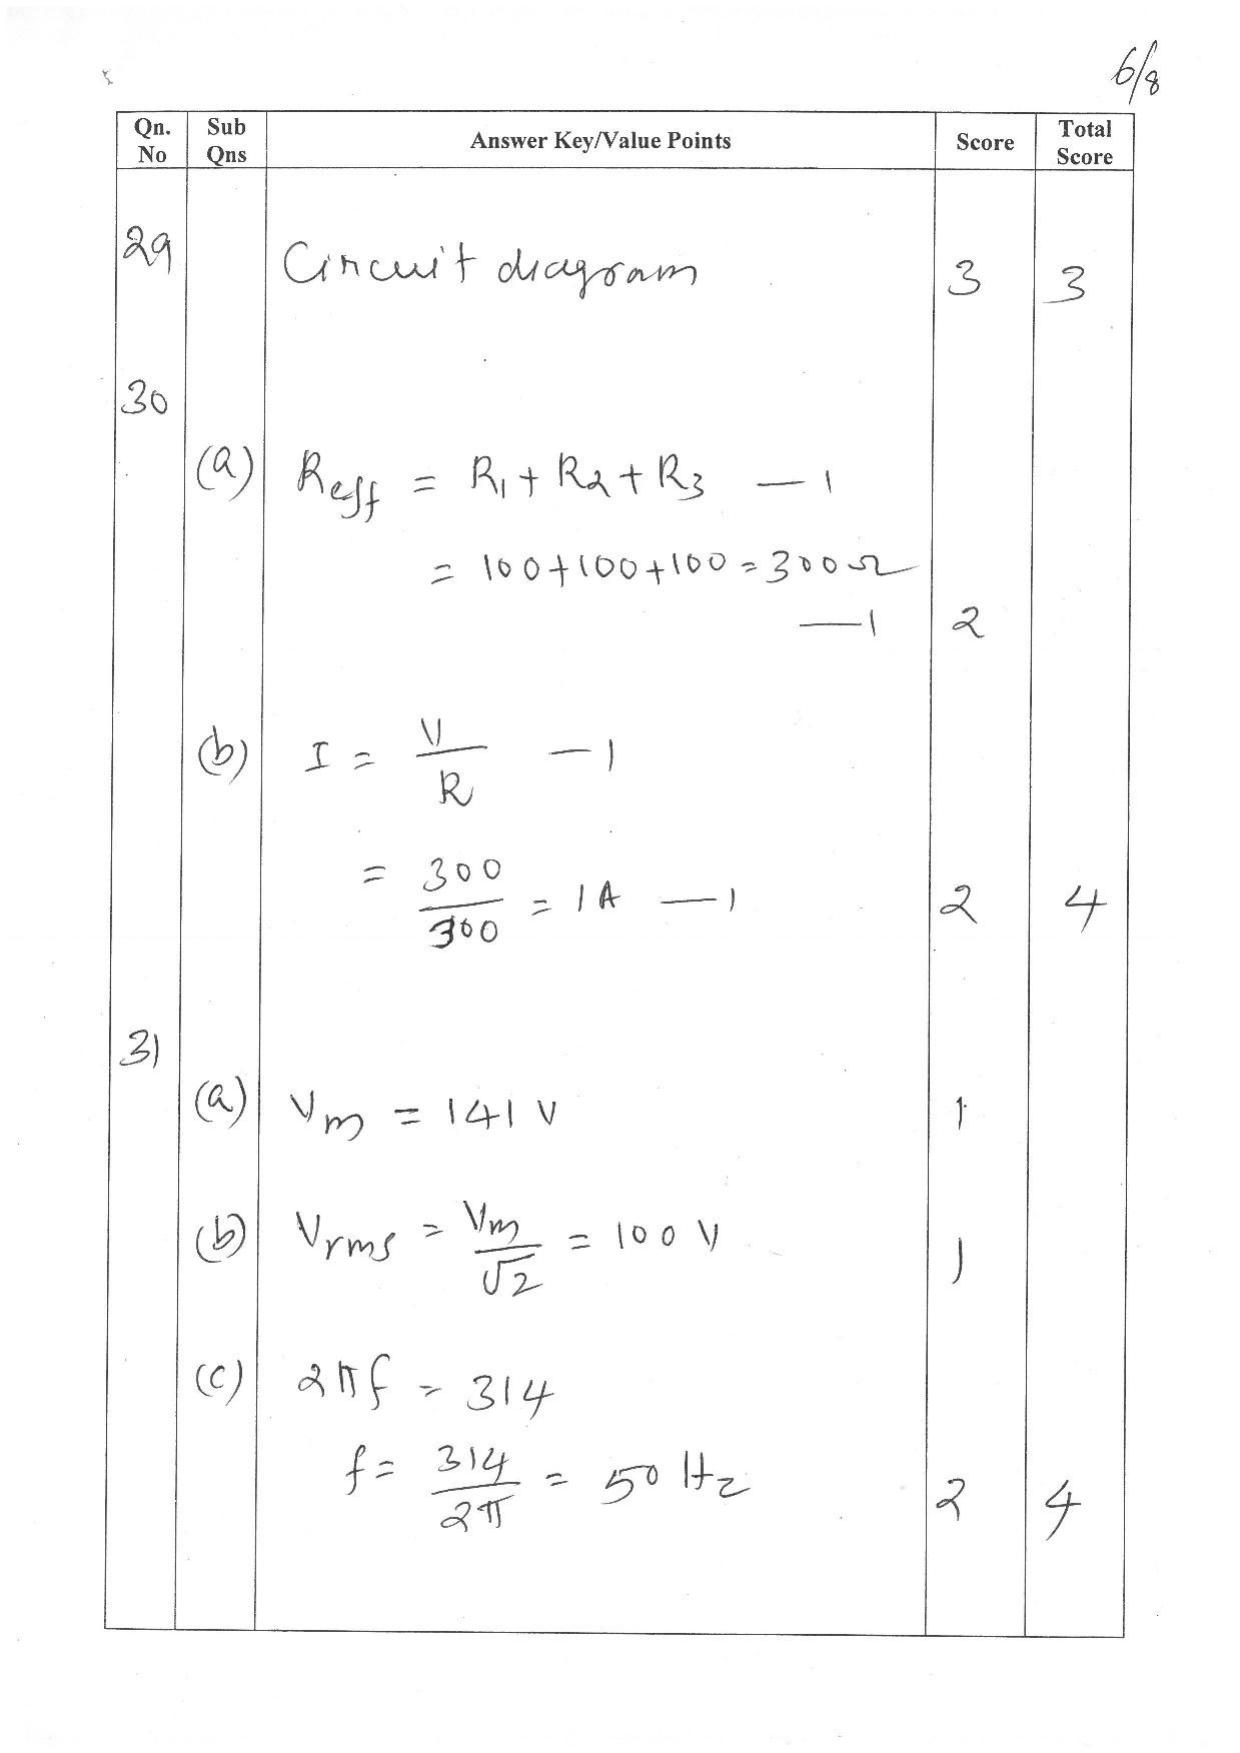 6/8
Qn. No Sub Qns Answer Key/Value Points Score Total Score
29 Circuit diagram 3 3
30
(a) Reff = R1 + R2 + R3 — 1
= 100+100+100 = 300Ω
— 1 2
(b) I = V/R — 1
= 300/300 = 1A — 1 2 4
31
(a) Vm = 141 V 1
(b) Vrms = Vm/√2 = 100 V 1
(c) 2πf = 314
f = 314/2π = 50 Hz 2 4